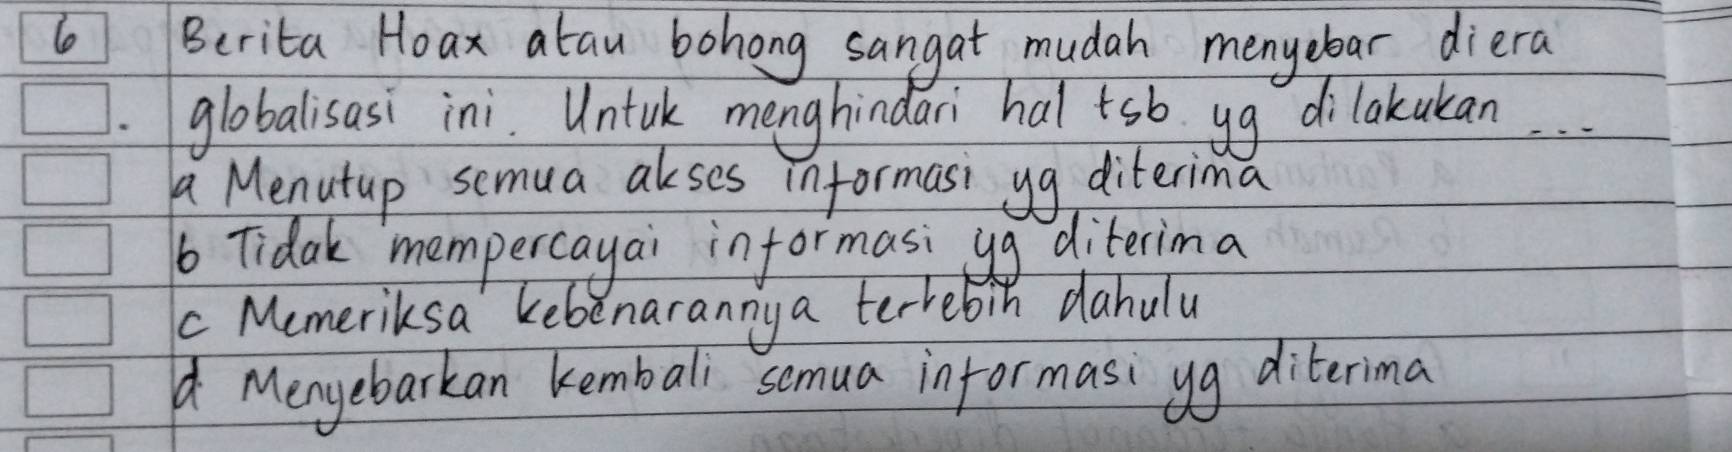 6 Berita Hoax atau bohong sangat mudah menyebar diera
. globalisasi ini. Untuk menghindari hal tsb yg dilakukan ...
a Menutup semua akses informasi yg diterima
b Tidak mempercayai informasi yg diterima
c Memeriksa kebenarannya terlebih dahulu
d Menyebarkan kembali semua informasi yg diterima